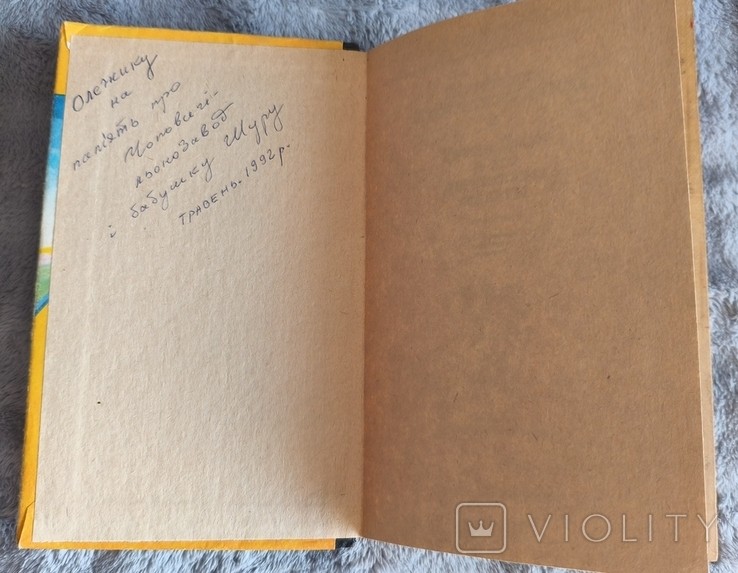 Олежику
на
пам'ять про
Чоповичі-
льонозавод
й бабушку Шуру
травень. 1992 р.
VIOLITY